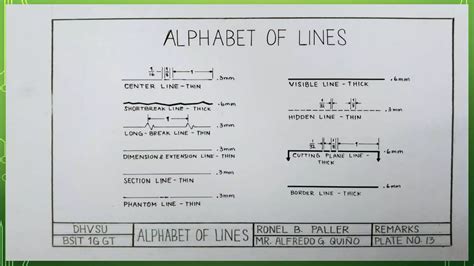 ALPHABET OF LINES
.3mm
CENTER LINE - THIN
.6mm
SHORTBREAK LINE - THICK
.3mm
LONG-BREAK LINE - THIN
.3mm
DIMENSION & EXTENSION LINE - THIN
.3mm
SECTION LINE - THIN
.3mm
PHANTOM LINE - THIN
.6mm
VISIBLE LINE - THICK
.3mm
HIDDEN LINE - THIN
.6mm
CUTTING PLANE LINE - THICK
.6mm
BORDER LINE - THICK
DHVSU
BSIT 1G GT
ALPHABET OF LINES
RONEL B. PALLER
MR. ALFREDO G. QUIÑO
REMARKS
PLATE NO. 13